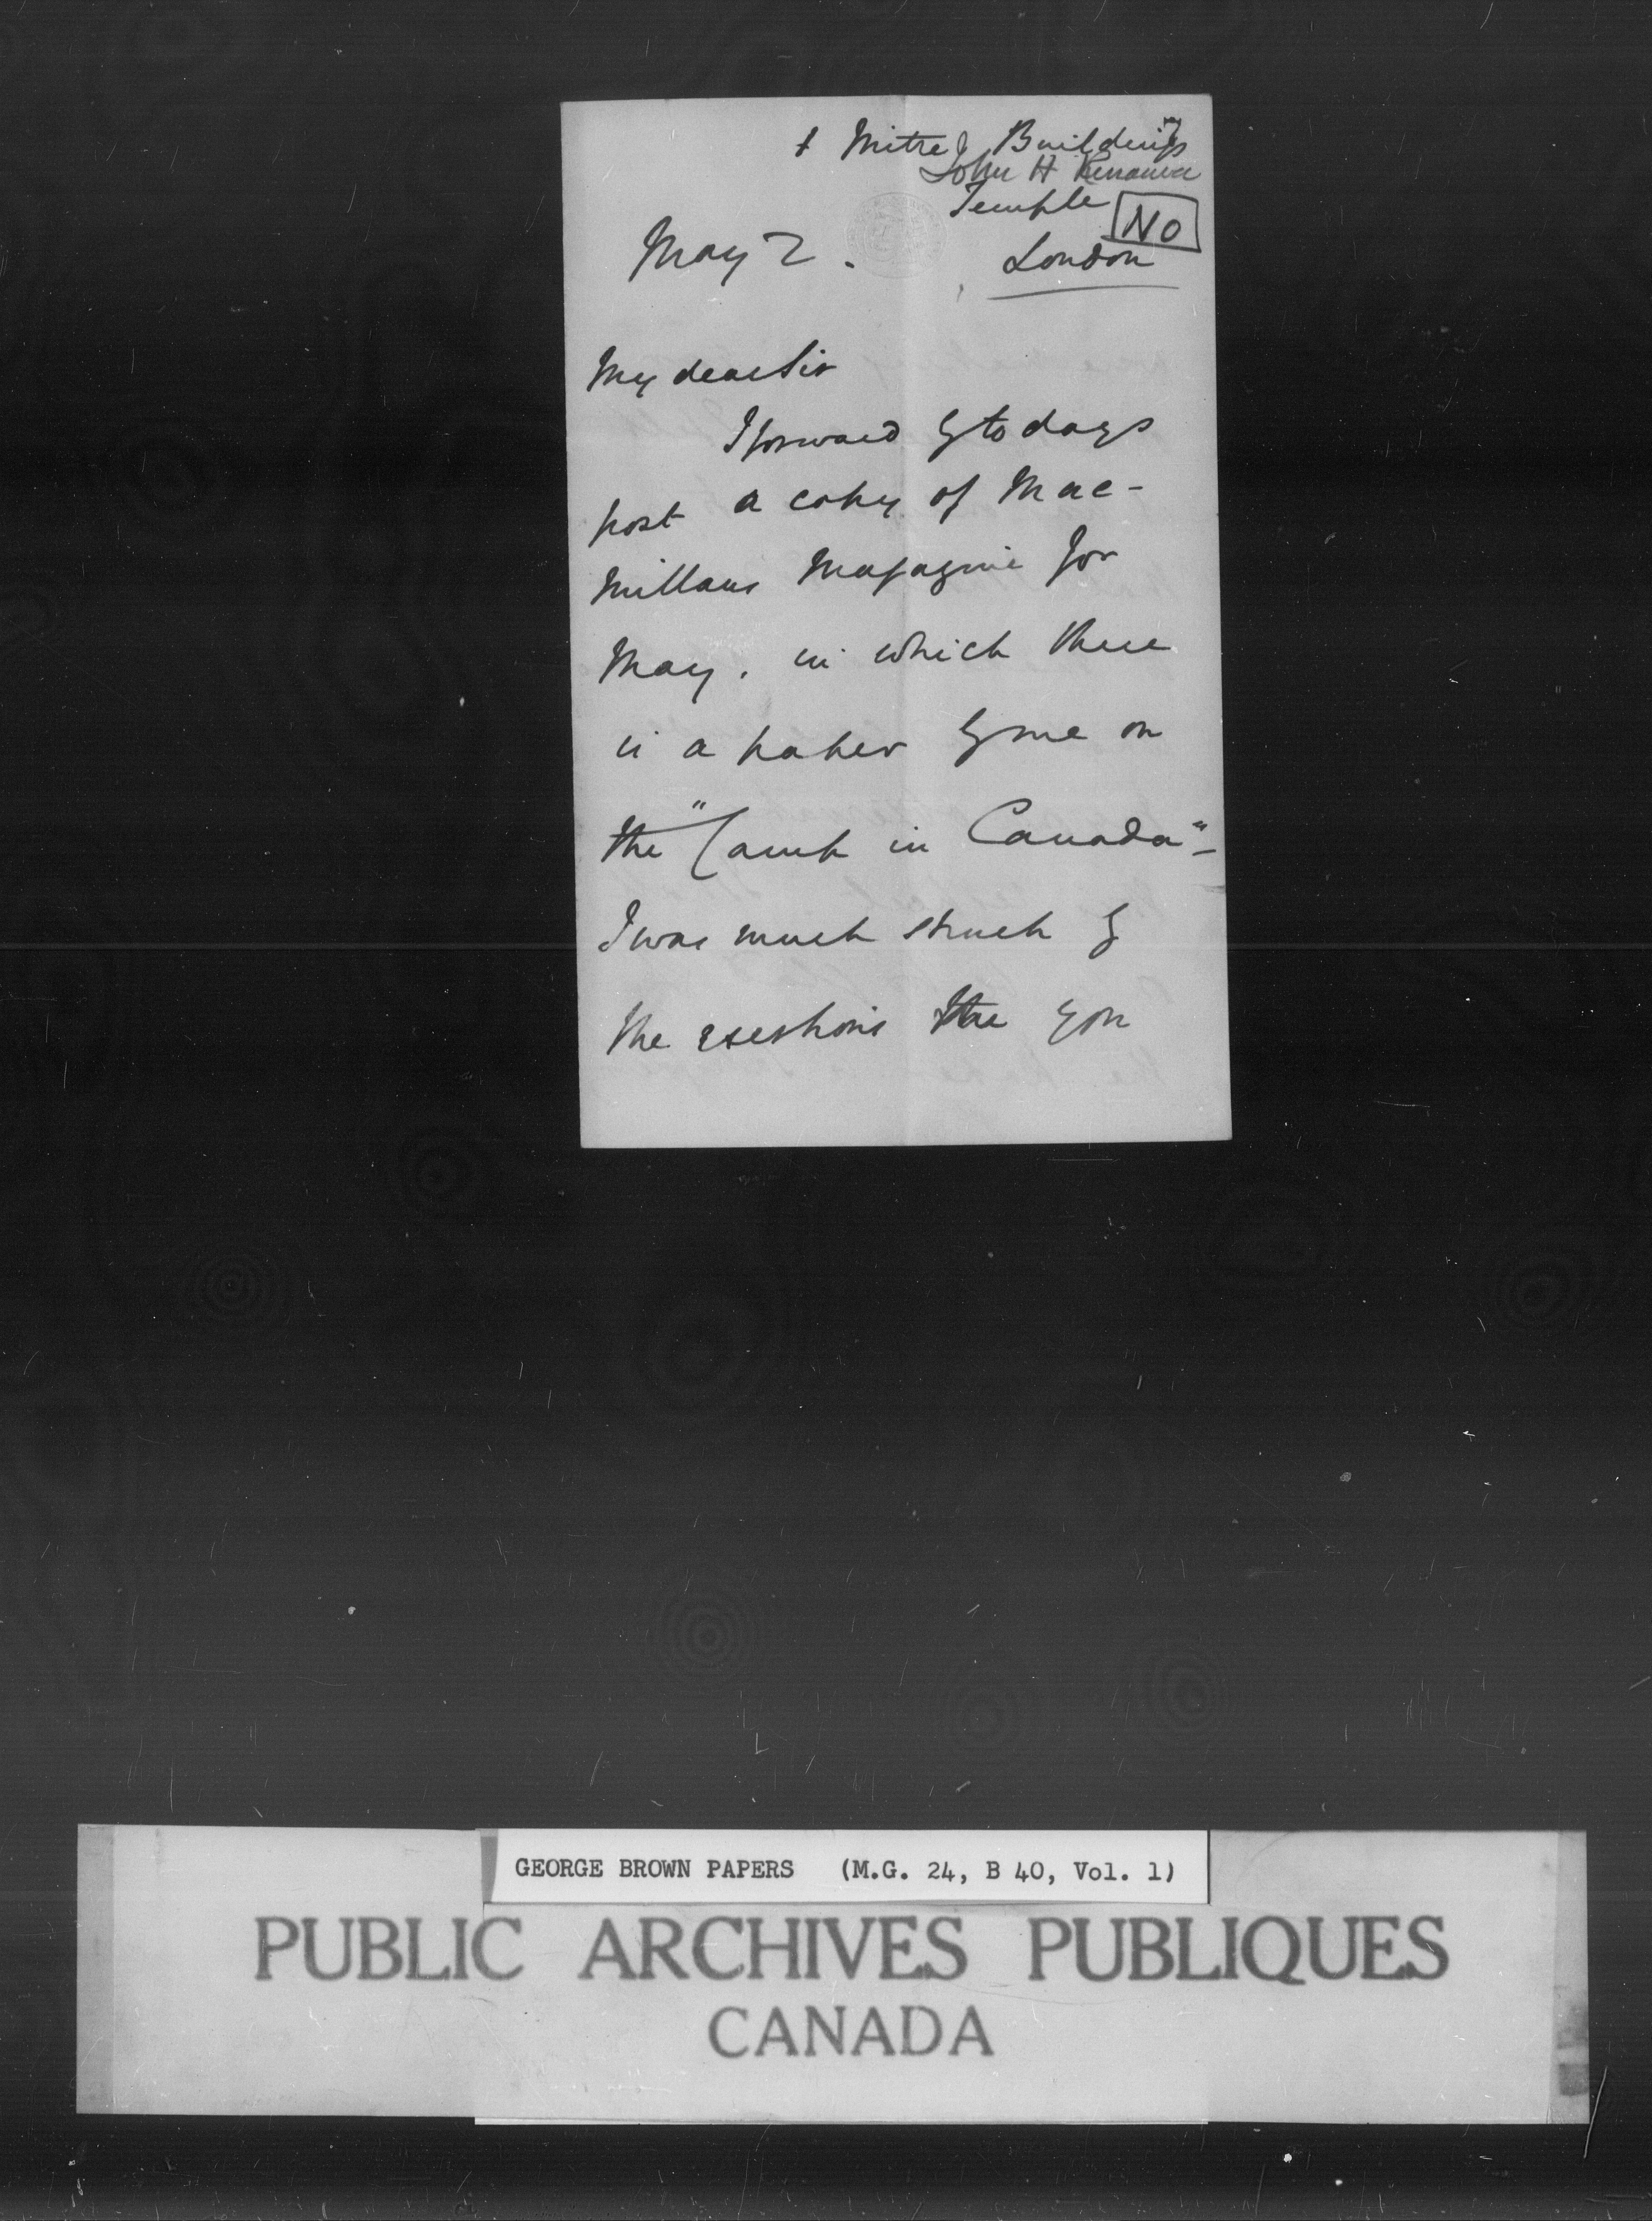 1 Mitre Buildings
John H Kennaway
Temple
NO
May 2. London
My dear Sir
I forward by to days
post a copy of Mac-
millans Magazine for
May. in which there
is a paper by me on
the "Camp in Canada"-
I was much struck by
the exertions the you
GEORGE BROWN PAPERS (M.G. 24, B 40, Vol. 1)
PUBLIC ARCHIVES PUBLIQUES
CANADA